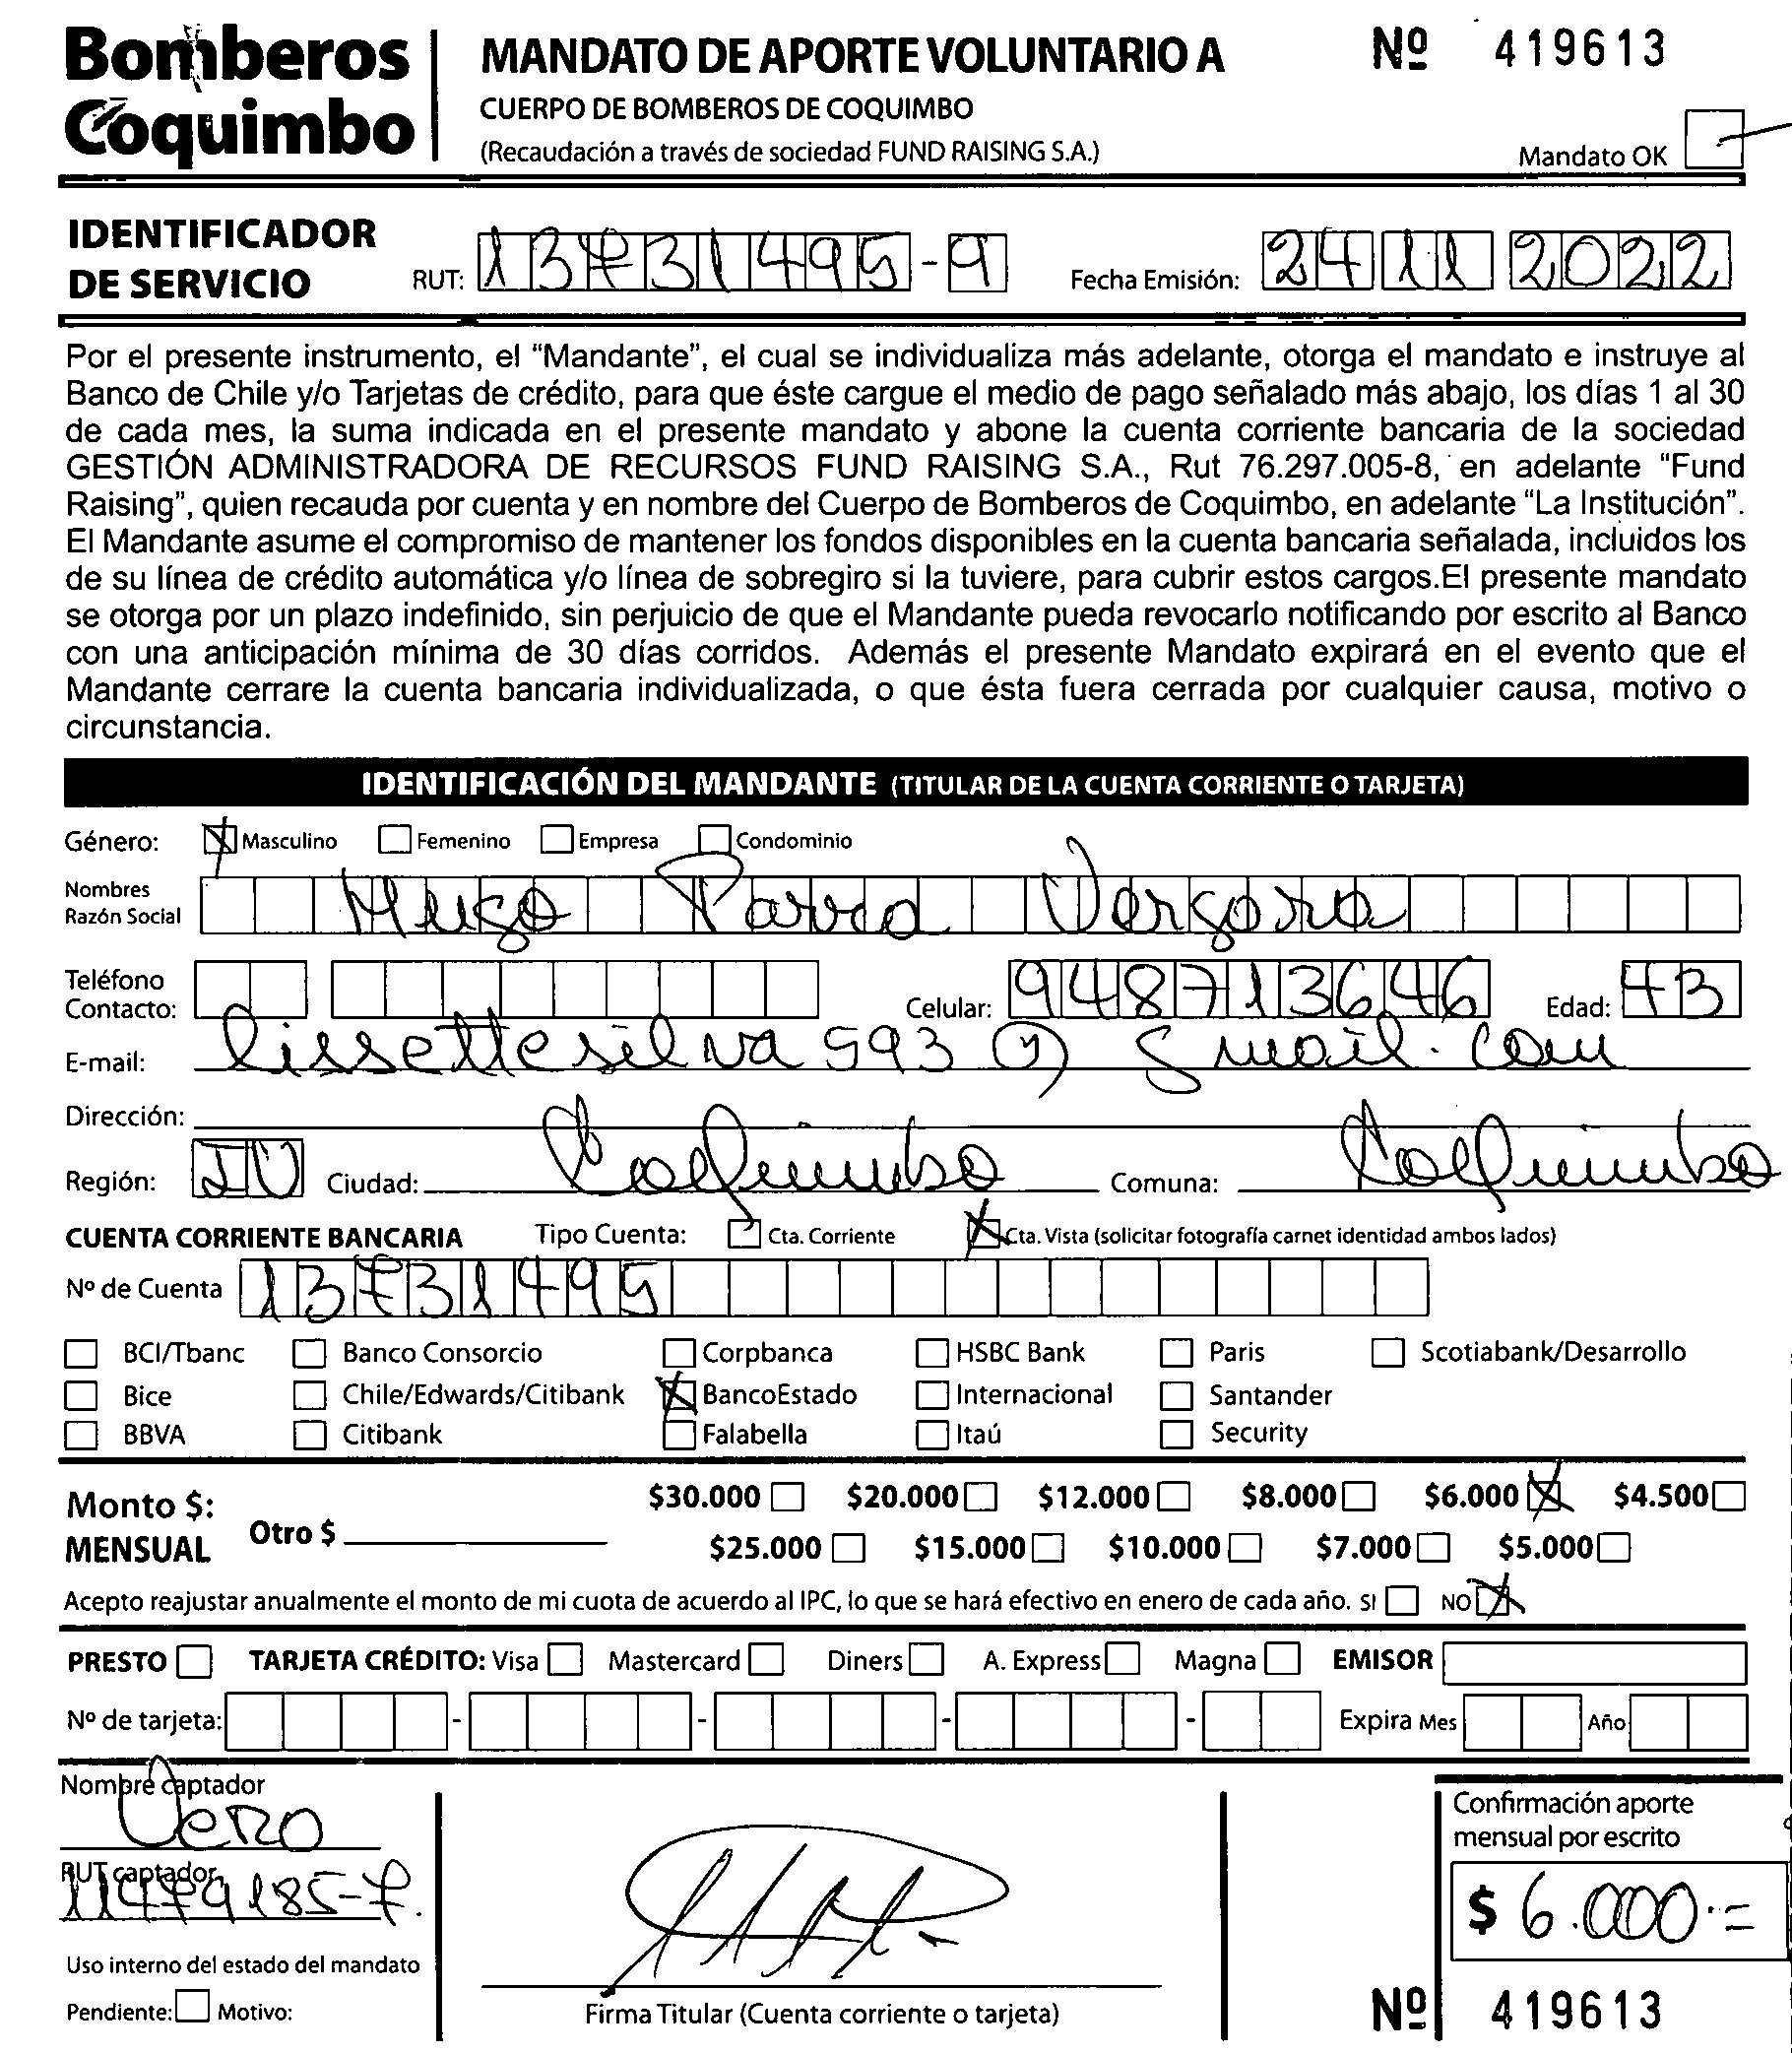 Bomberos Coquimbo
MANDATO DE APORTE VOLUNTARIO A
Nº 419613
CUERPO DE BOMBEROS DE COQUIMBO
(Recaudación a través de sociedad FUND RAISING S.A.)
Mandato OK
IDENTIFICADOR DE SERVICIO
RUT: 13731495-9
Fecha Emisión: 24 11 2022
Por el presente instrumento, el “Mandante”, el cual se individualiza más adelante, otorga el mandato e instruye al
Banco de Chile y/o Tarjetas de crédito, para que éste cargue el medio de pago señalado más abajo, los días 1 al 30
de cada mes, la suma indicada en el presente mandato y abone la cuenta corriente bancaria de la sociedad
GESTIÓN ADMINISTRADORA DE RECURSOS FUND RAISING S.A., Rut 76.297.005-8, en adelante “Fund
Raising”, quien recauda por cuenta y en nombre del Cuerpo de Bomberos de Coquimbo, en adelante “La Institución”.
El Mandante asume el compromiso de mantener los fondos disponibles en la cuenta bancaria señalada, incluidos los
de su línea de crédito automática y/o línea de sobregiro si la tuviere, para cubrir estos cargos.El presente mandato
se otorga por un plazo indefinido, sin perjuicio de que el Mandante pueda revocarlo notificando por escrito al Banco
con una anticipación mínima de 30 días corridos. Además el presente Mandato expirará en el evento que el
Mandante cerrare la cuenta bancaria individualizada, o que ésta fuera cerrada por cualquier causa, motivo o
circunstancia.
IDENTIFICACIÓN DEL MANDANTE (TITULAR DE LA CUENTA CORRIENTE O TARJETA)
Género: Masculino Femenino Empresa Condominio
Nombres Razón Social Hugo Parra Vergara
Teléfono Contacto: Celular: 948713646 Edad: 43
E-mail: lissettesilva593@gmail.com
Dirección:
Región: IV Ciudad: Coquimbo Comuna: Coquimbo
CUENTA CORRIENTE BANCARIA Tipo Cuenta: Cta. Corriente Cta. Vista (solicitar fotografía carnet identidad ambos lados)
Nº de Cuenta 13731495
BCI/Tbanc Banco Consorcio Corpbanca HSBC Bank Paris Scotiabank/Desarrollo
Bice Chile/Edwards/Citibank BancoEstado Internacional Santander
BBVA Citibank Falabella Itaú Security
Monto $: MENSUAL Otro $
$30.000 $20.000 $12.000 $8.000 $6.000 $4.500
$25.000 $15.000 $10.000 $7.000 $5.000
Acepto reajustar anualmente el monto de mi cuota de acuerdo al IPC, lo que se hará efectivo en enero de cada año. SI NO
PRESTO TARJETA CRÉDITO: Visa Mastercard Diners A. Express Magna EMISOR
Nº de tarjeta: - - - - Expira Mes Año
Nombre captador
Vero
RUT captador
11479185-7.
Uso interno del estado del mandato
Pendiente: Motivo:
Firma Titular (Cuenta corriente o tarjeta)
Confirmación aporte
mensual por escrito
$ 6.000.=
Nº 419613